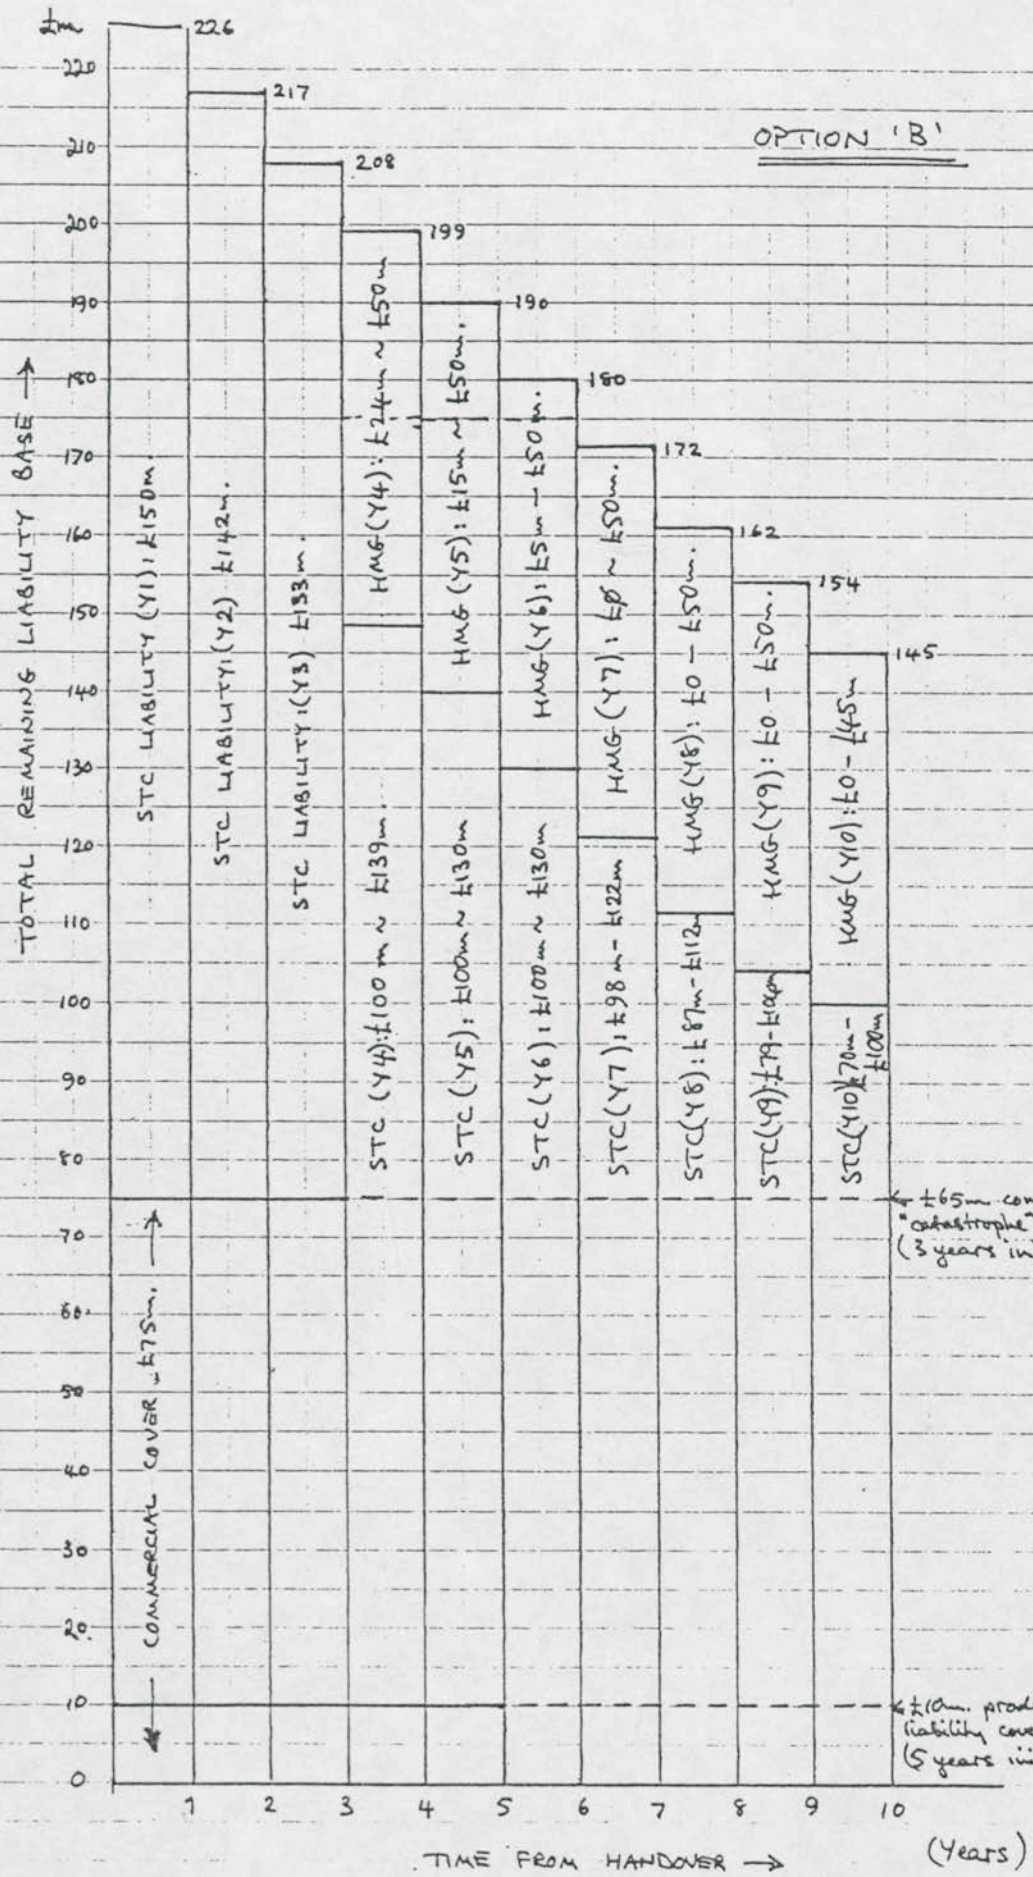 £m
226
220
217
210
OPTION 'B'
208
200
199
190
190
180
180
172
170
162
160
154
150
145
140
130
120
110
100
90
80
70
60
50
40
30
20
10
0
TOTAL REMAINING LIABILITY BASE →
STC LIABILITY (Y1): £150m.
STC LIABILITY: (Y2) £142m.
STC LIABILITY: (Y3) £133m.
HMG (Y4): £24m ~ £50m
STC (Y4): £100m ~ £139m.
HMG (Y5): £15m ~ £50m.
STC (Y5): £100m ~ £130m
HMG (Y6): £5m - £50m.
STC (Y6): £100m ~ £130m
HMG (Y7): £0 ~ £50m.
STC (Y7): £98m - £122m
HMG (Y8): £0 - £50m.
STC (Y8): £87m - £112m
HMG (Y9): £0 - £50m.
STC (Y9): £79-£104m
HMG (Y10): £0 - £45m
STC (Y10) £70m -
£100m
← COMMERCIAL COVER £75m. →
← £65m com
"catastrophe"
(3 years in
← £10m. prod
liability cove
(5 years in
1 2 3 4 5 6 7 8 9 10
TIME FROM HANDOVER →
(Years)